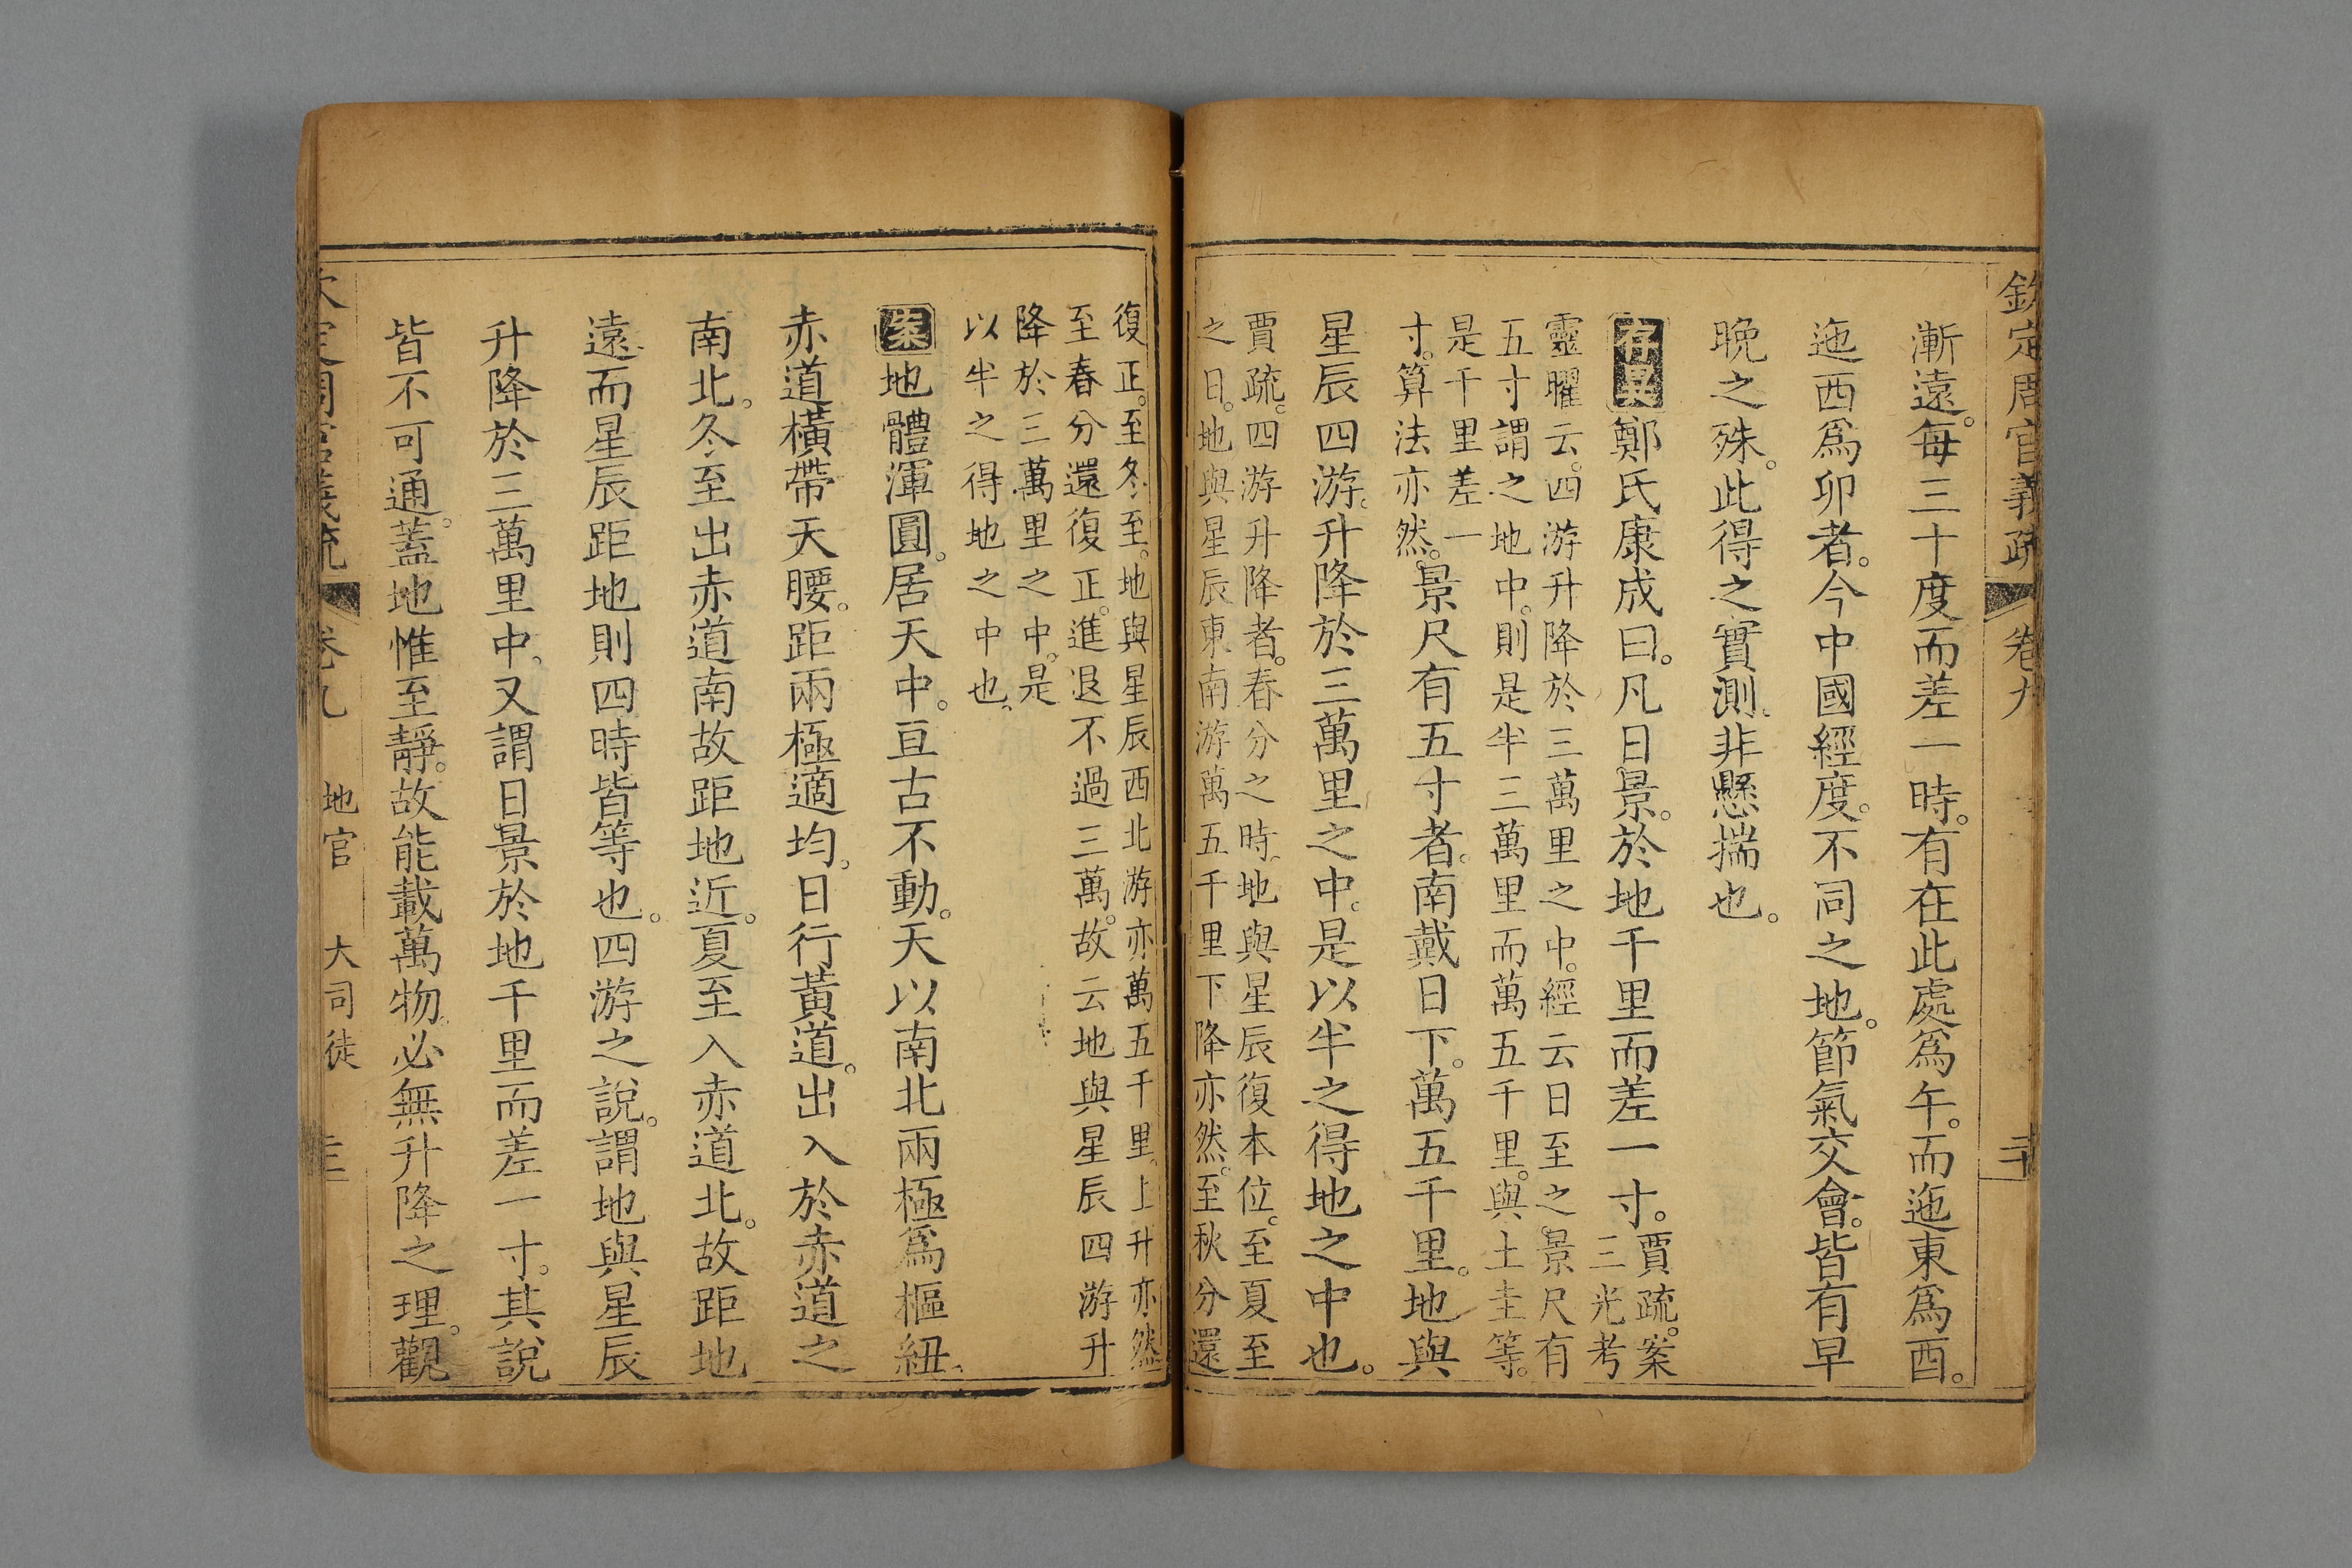 欽定周官義疏 卷九
漸遠。每三十度而差一時。有在此處爲午。而迤東爲酉。
迤西爲卯者。今中國經度。不同之地。節氣交會。皆有早
晚之殊。此得之實測。非懸揣也。
存異鄭氏康成曰。凡日景。於地千里而差一寸。賈疏。案
三光考
靈曜云。四游升降於三萬里之中。經云日至之景尺有
五寸謂之地中。則是半三萬里而萬五千里。與土圭等。
是千里差一
寸。算法亦然。景尺有五寸者。南戴日下。萬五千里。地與
星辰四游。升降於三萬里之中。是以半之得地之中也。
賈疏。四游升降者。春分之時。地與星辰復本位。至夏至
之日。地與星辰東南游萬五千里下降亦然。至秋分還
復正。至冬至。地與星辰西北游亦萬五千里。上升亦然
至春分還復正。進退不過三萬。故云地與星辰四游升
降於三萬里之中。是
以半之得地之中也。
案地體渾圓。居天中。亘古不動。天以南北兩極爲樞紐。
赤道橫帶天腰。距兩極適均。日行黃道。出入於赤道之
南北。冬至出赤道南故距地近。夏至入赤道北。故距地
遠而星辰距地則四時皆等也。四游之說。謂地與星辰
升降於三萬里中。又謂日景於地千里而差一寸。其說
皆不可通。蓋地惟至靜。故能載萬物。必無升降之理。觀
地官 大司徒